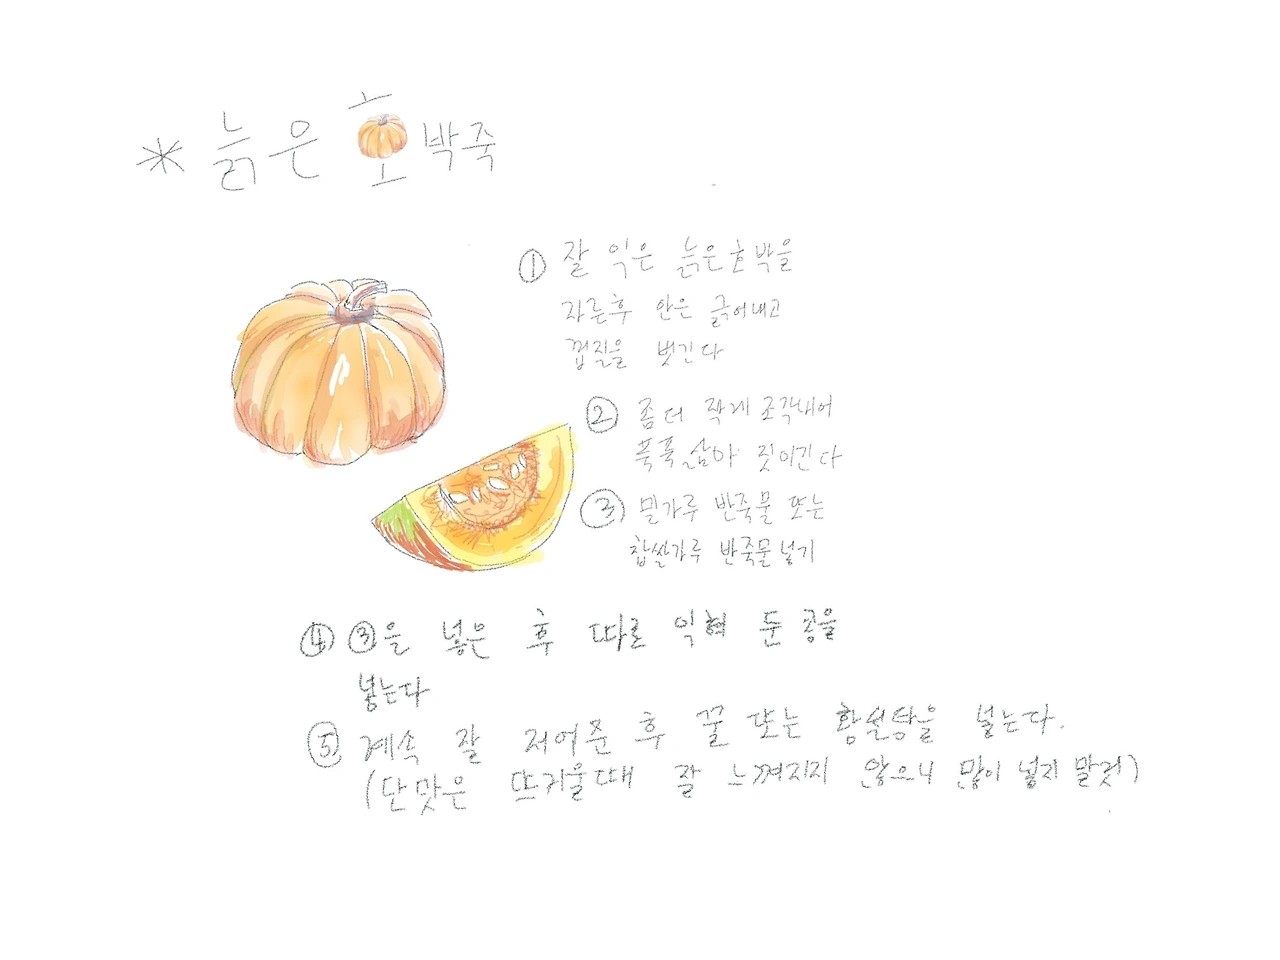 * 늙은 호박죽
① 잘 익은 늙은호박을
자른후 안은 긁어내고
껍질을 벗긴다
② 좀더 작게 조각내어
푹푹삶아 짓이긴다
③ 밀가루 반죽물 또는
찹쌀가루 반죽물넣기
④ ③을 넣은 후 따로 익혀 둔 콩을
넣는다
⑤ 계속 잘 저어준 후 꿀 또는 황설탕을 넣는다.
(단맛은 뜨거울때 잘 느껴지지 않으니 많이 넣지 말것)